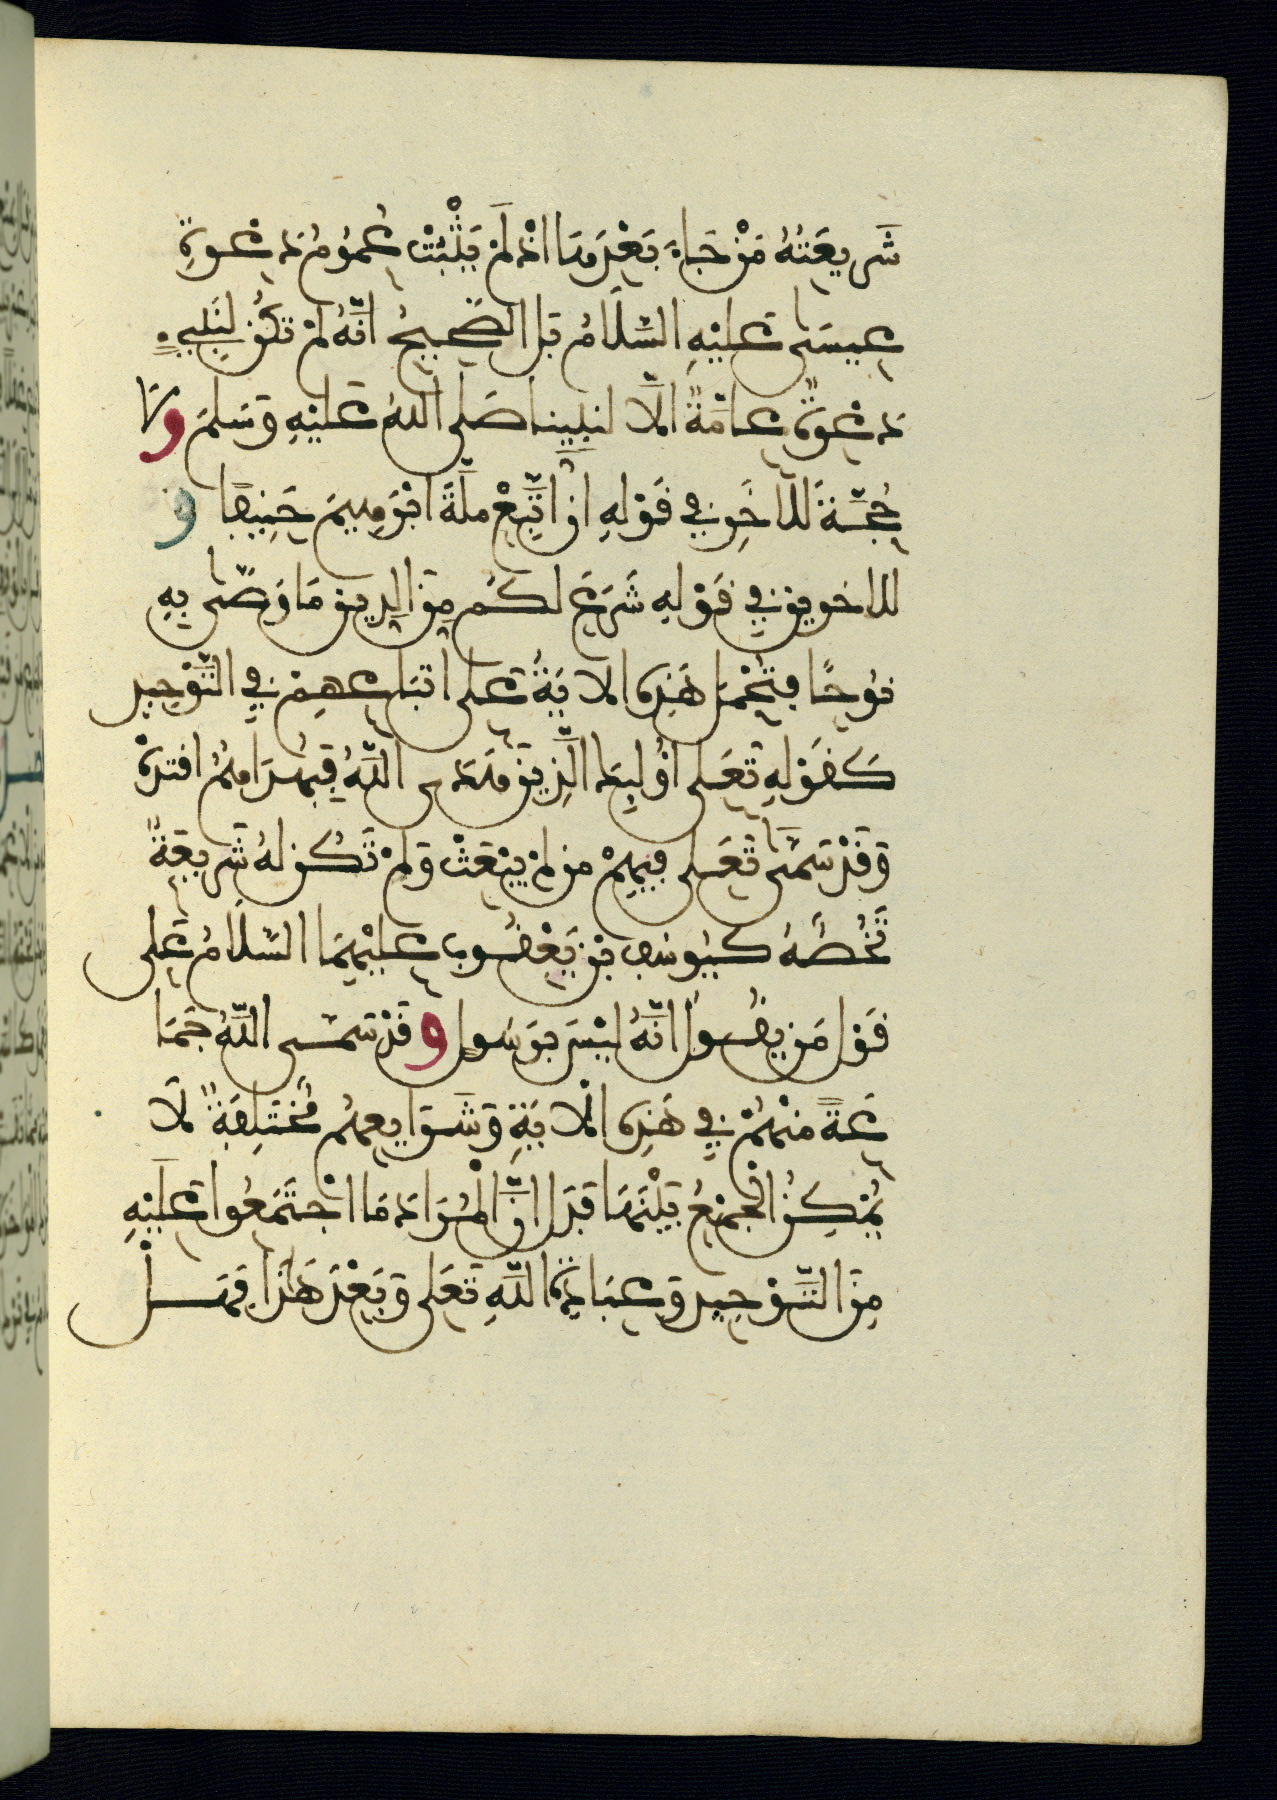 شَرِيعَتُهُ مَنْ جَاءَ بَعْدَهَا اذْ لَمْ يَثْبُتْ عُمُومُ دَعْوَةِ
عِيسَى عَلَيْهِ السَّلَامُ بَلِ الصَّحِيحُ انَّهُ لَمْ تَكُنْ لِنَبِيءٍ
دَعْوَةٌ عَامَّةٌ الَّا لنَبِيِينا صَلى اللهُ عَلَيْهِ وَسَلمَ وَلَا
حُجَّةَ للَاخَرِ في قَوْلِهِ انِ اتَّبِعْ مِلَّةَ ابْرَهِيمَ حَنِيفًا و
للاخرين في قَوْلهِ شَرَعَ لَكُم مِنَ الدِينِ مَا وَصَّى بِهِ
نُوحًا فتُحْمَل هَذِهِ الايَةُ عَلى اتبَاعِهِمْ في التَّوْحِيدِ
كَقَوْلِهِ تَعَلى اوْليِكَ الَّذِينَ هَدَى اللَّهُ فَبِهُدَاهُمُ اقتدِهْ
وَقَدْ سَمَّى تَعَلى فِيهِمْ من لمْ يُبْعَثْ وَلمْ تَكُن لهُ شَرِيعَةٌ
تَخُصُّهُ كيُوسُفَ بْنِ يَعْقُوبَ عَلَيْهِمَا السَّلَامُ عَلى
قَوْلِ مَن يقُولُ انَّهُ ليْسَ برَسُول وقَدْ سَمى اللَّهُ جَمَا
عَةً منْهُمْ في هَذِهِ الْايَةِ وَشَرَايعهُمْ مُخْتَلِفَةٌ لَا
يُمْكِنُ الْجَمْعُ بَيْنَهَا فَدَل انَّ الْمُرَادَ مَا اجْتَمَعُوا عَلَيْهِ
مِنَ التَّوْحِيدِ وَعِبَادَةِ اللَّهِ تَعَلى وَبَعْدَ هَذَا فَهَلْ